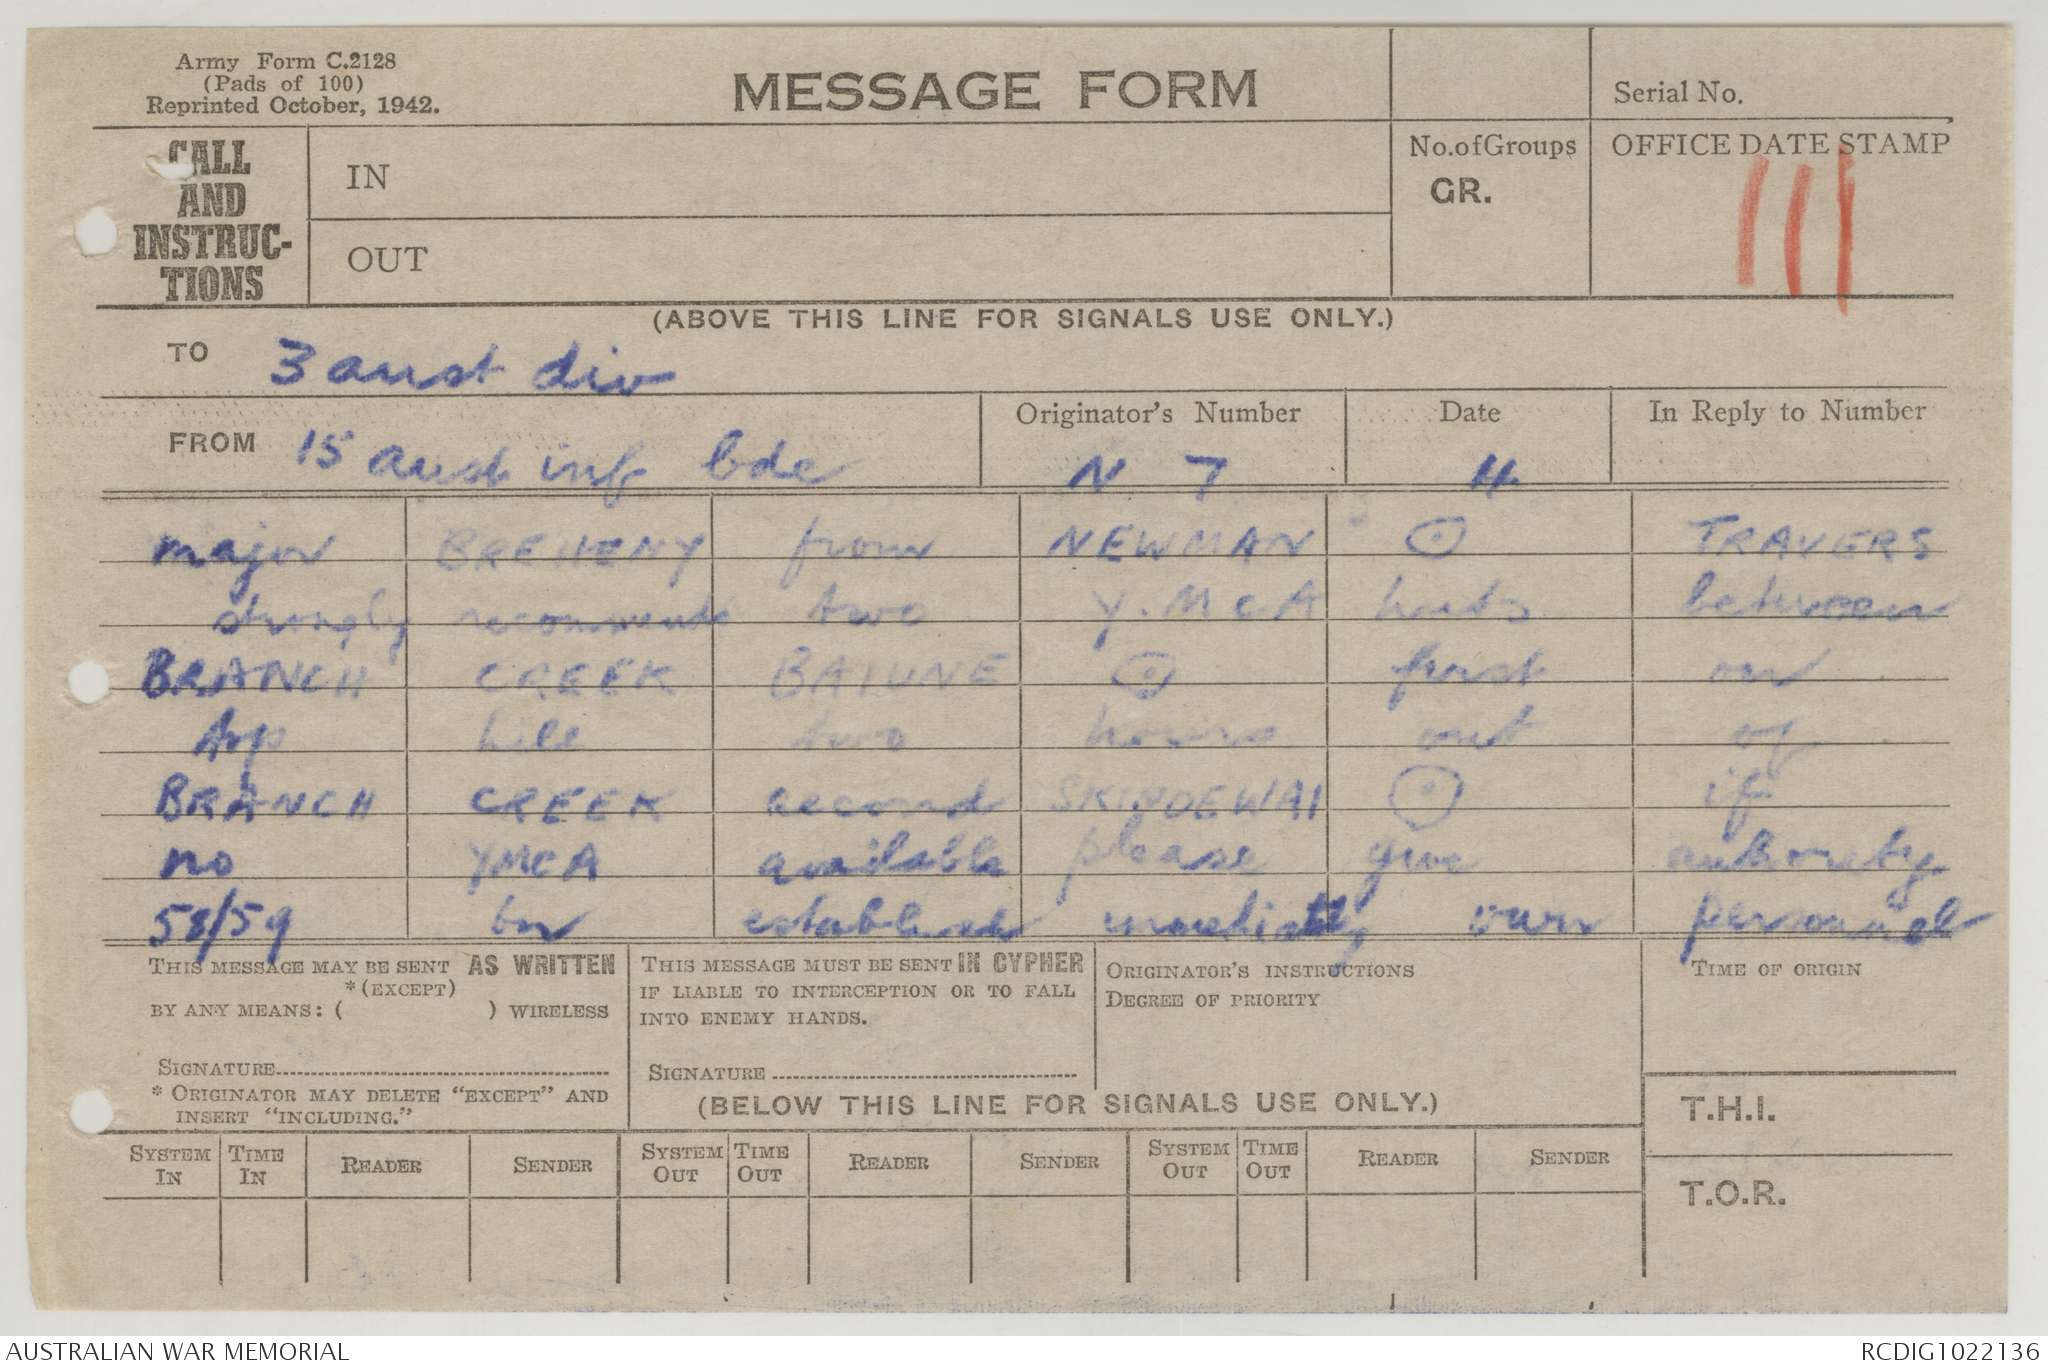 Army Form C.2128
(Pads of 100)
Reprinted October, 1942.
MESSAGE FORM
Serial No.
CALL
AND
INSTRUC-
TIONS
IN
OUT
No. of Groups
GR.
OFFICE DATE STAMP
111
(ABOVE THIS LINE FOR SIGNALS USE ONLY.)
TO 3 aust div
FROM 15 aust inf bde
Originator's Number N 7
Date 4
In Reply to Number
major BREHENY from NEWMAN ⊙ TRAVERS
strongly recommends two Y.MCA huts between
BRANCH CREEK BAIUNE ⊙ first on
top hill two hours out of
BRANCH CREEK second SKINDEWAI ⊙ if
no YMCA available please give authority
58/59 bn establish immediately own personnel
THIS MESSAGE MAY BE SENT AS WRITTEN
*(EXCEPT)
BY ANY MEANS: ( ) WIRELESS
SIGNATURE
* ORIGINATOR MAY DELETE "EXCEPT" AND
INSERT "INCLUDING."
THIS MESSAGE MUST BE SENT IN CYPHER
IF LIABLE TO INTERCEPTION OR TO FALL
INTO ENEMY HANDS.
SIGNATURE
ORIGINATOR'S INSTRUCTIONS
DEGREE OF PRIORITY
TIME OF ORIGIN
(BELOW THIS LINE FOR SIGNALS USE ONLY.)
T.H.I.
T.O.R.
SYSTEM IN TIME IN READER SENDER SYSTEM OUT TIME OUT READER SENDER SYSTEM OUT TIME OUT READER SENDER
AUSTRALIAN WAR MEMORIAL
RCDIG1022136